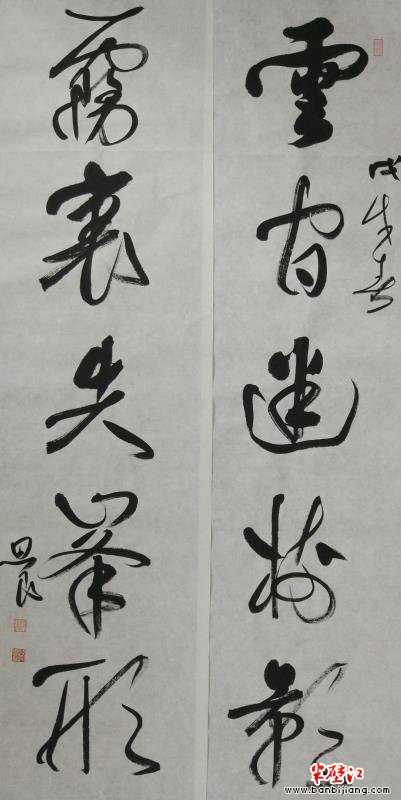 雲間迷樹影
戊戌春
霧裏失峯形
半壁江
www.banbijiang.com